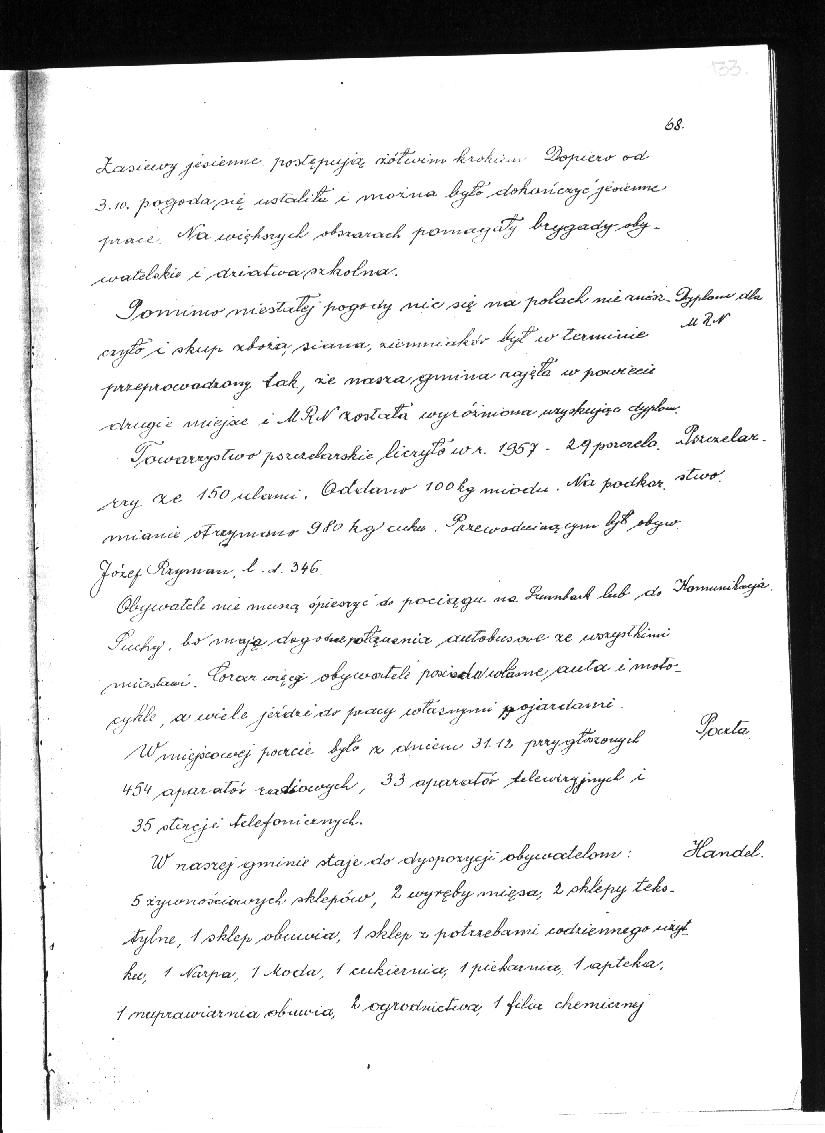 133.
68.
Zasiewy jesienne postępują żółwim krokiem Dopiero od
3.10. pogoda się ustaliła i można było dokończyć jesienne
prace. Na większych obszarach pomagały brygady oby-
watelskie i dziatwa szkolna.
Pomimo niestałej pogody nic się na polach nie znisz- Dyplom dla
czyło i skup zboża, siana, ziemniaków był w terminie MRN
przeprowadzony tak, że nasza gmina zajęła w powiecie
drugie miejsc i MRN została wyróżniona uzyskując dyplom.
Towarzystwo pszczelarskie liczyło w r. 1957 - 29 pszczela- Pszczelar-
rzy ze 150 ulami. Oddano 100 kg miodu. Na podkar- stwo.
mianie otrzymano 980 kg cukru. Przewodniczącym był obyw.
Józef Ryman, l. d. 346
Obywatele nie muszą śpieszyć do pociągu na lub do Komunikacja.
Puchy, bo mają dogodne połączenia autobusowe ze wszystkimi
miastami. Coraz więcej obywateli posiada własne auta i moto-
cykle, a wiele jeździ do pracy własnymi pojazdami.
W miejscowej poczcie było z dniem 31.12 przygłoszonych Poczta.
454 aparatów radiowych, 33 aparatów telewizyjnych i
35 stacji telefonicznych.
W naszej gminie staje do dyspozycji obywatelom: Handel.
5 żywnościowych sklepów, 2 wyręby mięsa, 2 sklepy teks-
tylne, 1 sklep obuwia, 1 sklep z potrzebami codziennego użyt-
ku, 1 Narpa, 1 Moda, 1 cukiernia, 1 piekarnia, 1 apteka,
1 naprawiarnia obuwia, 2 ogrodnictwa, 1 filia chemicznej